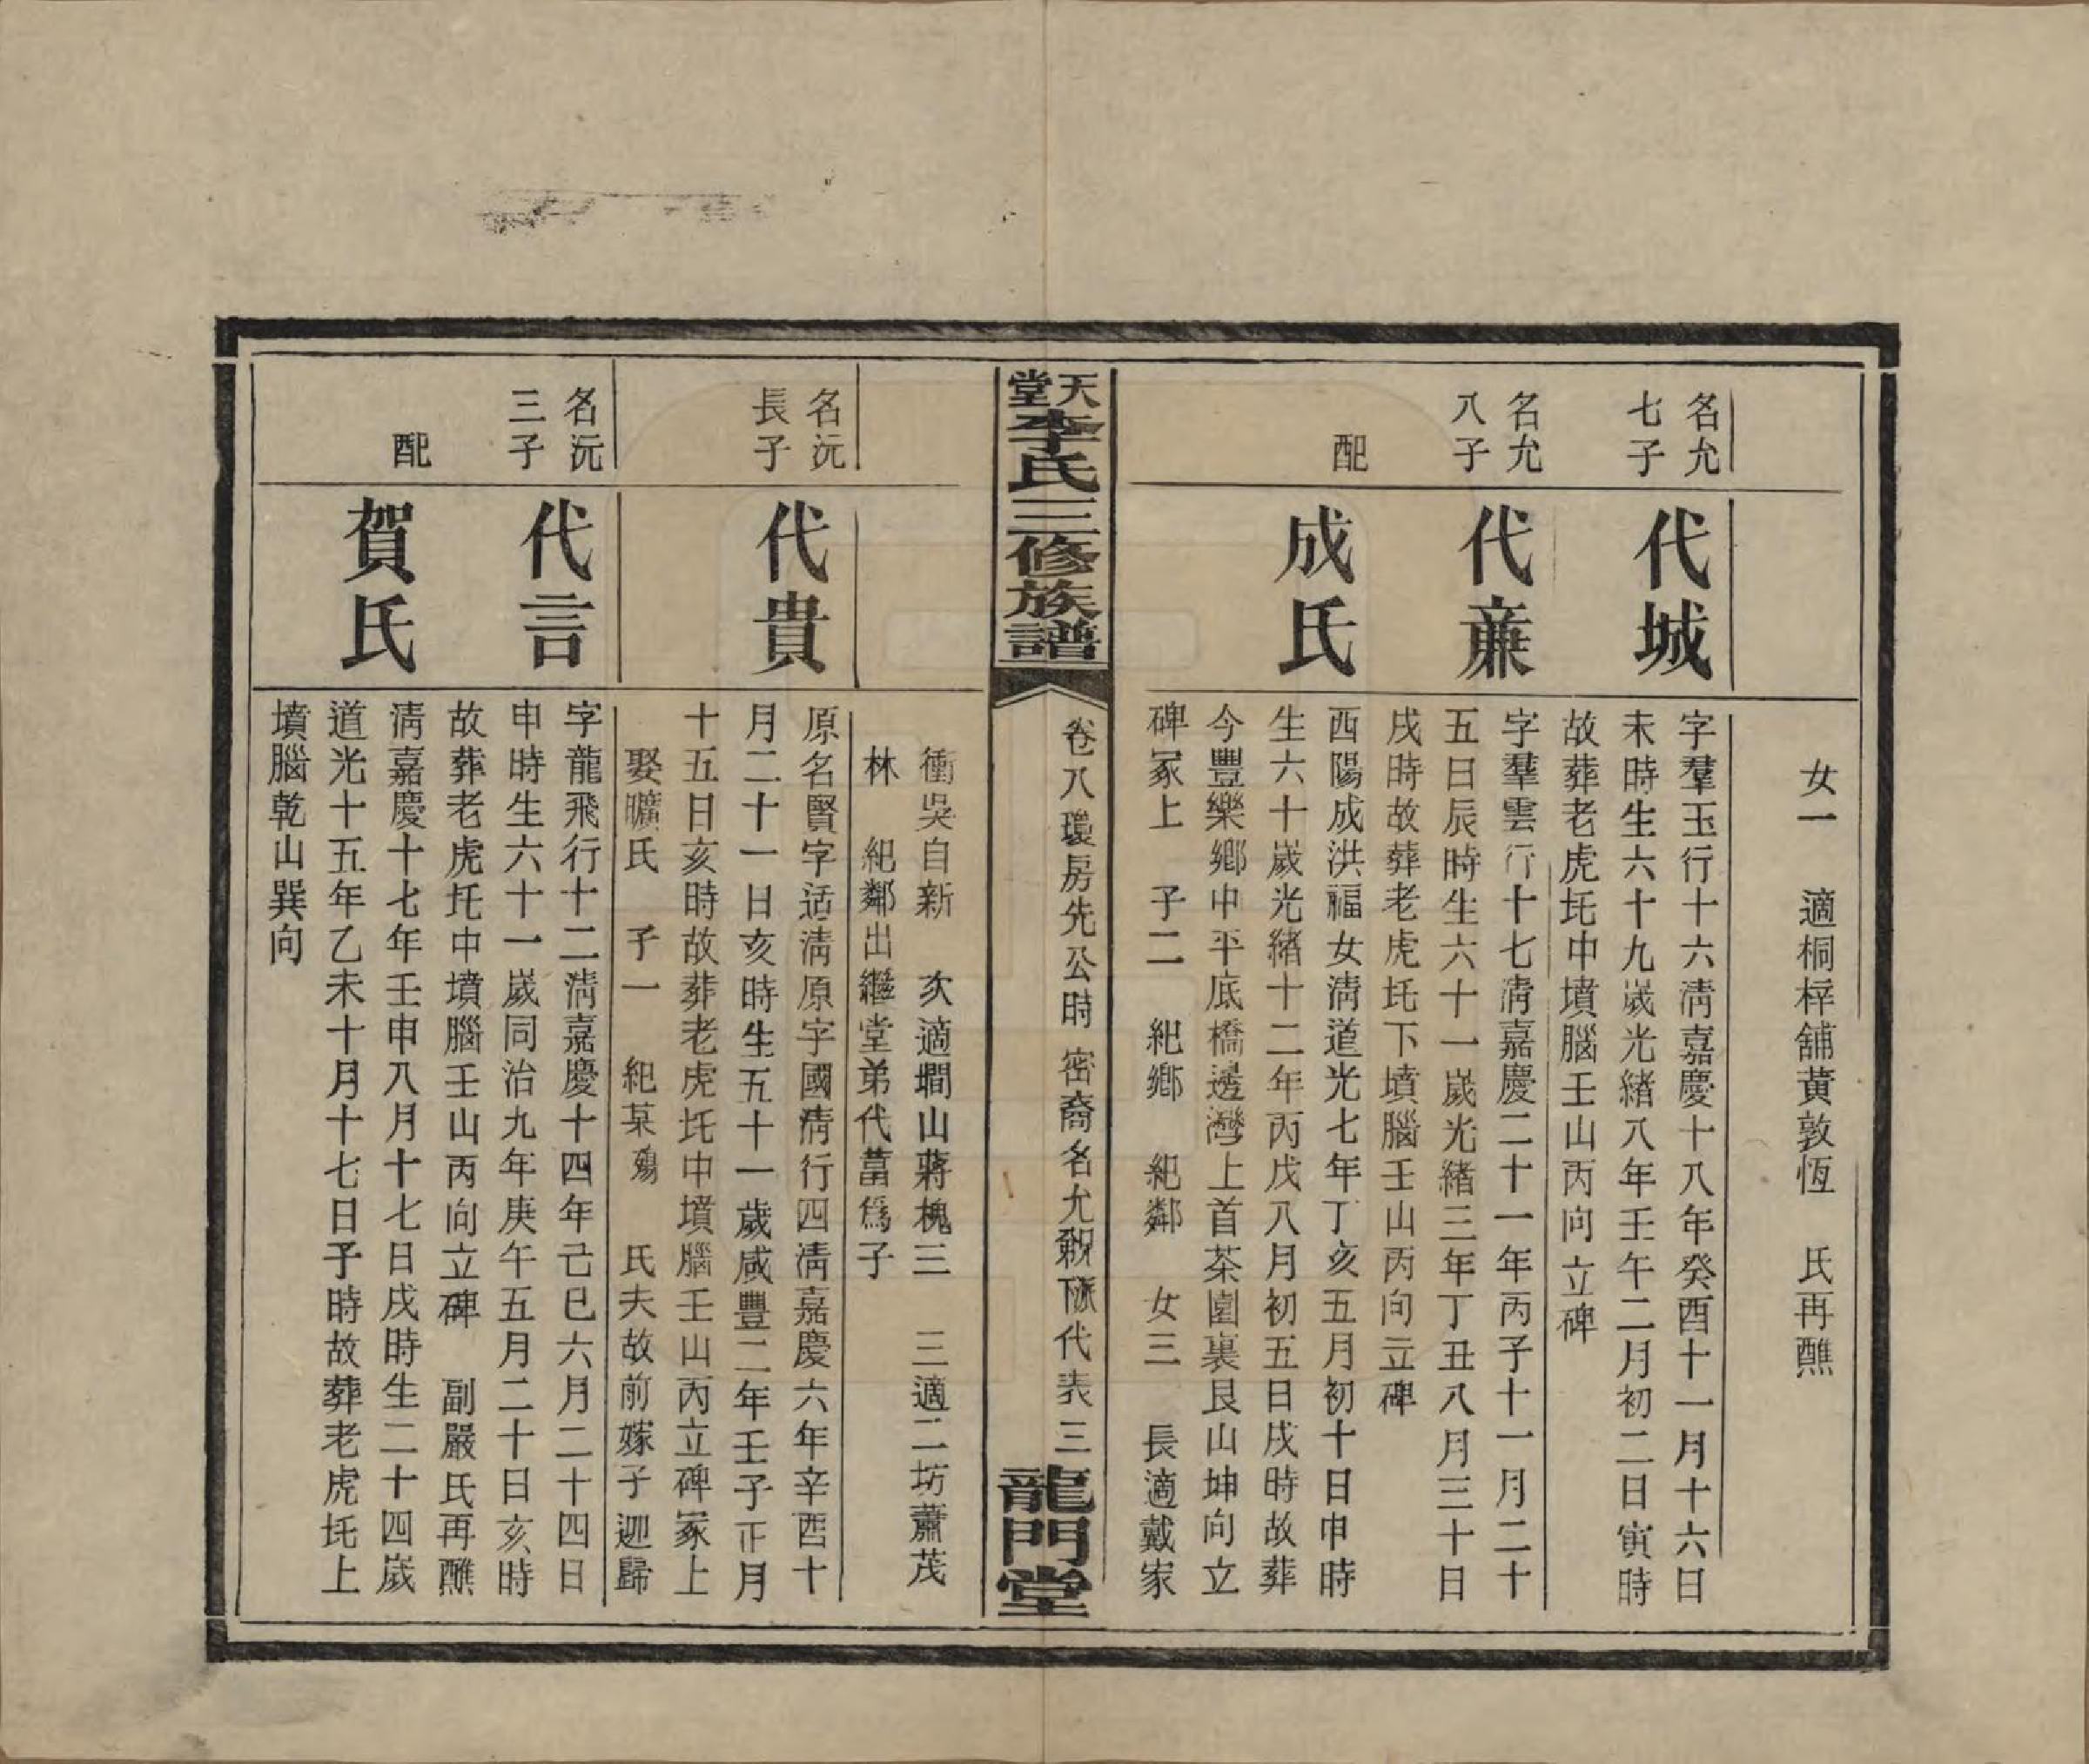 女一　適桐梓舖黃敦恆　氏再醮
名允
七子
代城
字羣玉行十六淸嘉慶十八年癸酉十一月十六日
未時生六十九歲光緒八年壬午二月初二日寅時
故葬老虎圫中墳腦壬山丙向立碑
名允
八子
代亷
字羣雲行十七淸嘉慶二十一年丙子十一月二十
五日辰時生六十一歲光緒三年丁丑八月三十日
戌時故葬老虎圫下墳腦壬山丙向立碑
配
成氏
西陽成洪福女淸道光七年丁亥五月初十日申時
生六十歲光緒十二年丙戌八月初五日戌時故葬
今豐樂鄉中平底橋邊灣上首茶園裏艮山坤向立
碑冢上　子二　紀鄉　紀鄰　女三　長適戴家
天堂李氏三修族譜
卷八瓊房先公時　密裔名允親隊代表三
龍門堂
衝吳自新　次適㵎山蔣槐三　三適二坊蕭茂
林　紀鄰出繼堂弟代菖爲子
名沅
長子
代貴
原名賢字适淸原字國淸行四淸嘉慶六年辛酉十
月二十一日亥時生五十一歲咸豐二年壬子正月
十五日亥時故葬老虎圫中墳腦壬山丙立碑冢上
娶曠氏　子一　紀某殤　氏夫故前嫁子迎歸
名沅
三子
代言
字龍飛行十二淸嘉慶十四年己巳六月二十四日
申時生六十一歲同治九年庚午五月二十日亥時
故葬老虎圫中墳腦壬山丙向立碑　副嚴氏再醮
配
賀氏
淸嘉慶十七年壬申八月十七日戌時生二十四歲
道光十五年乙未十月十七日子時故葬老虎圫上
墳腦乾山巽向